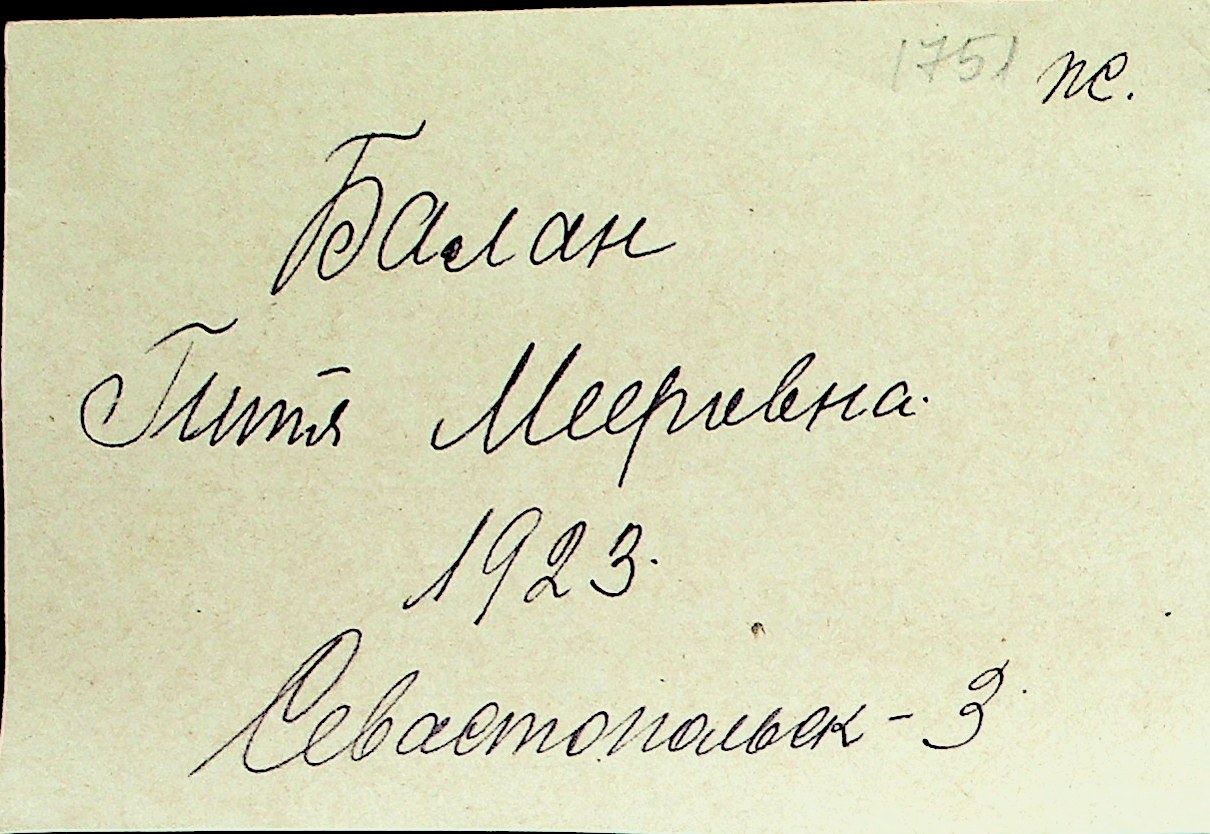 1751 пс.
Балан
Гитя Мееровна.
1923.
Севастопольск-3.